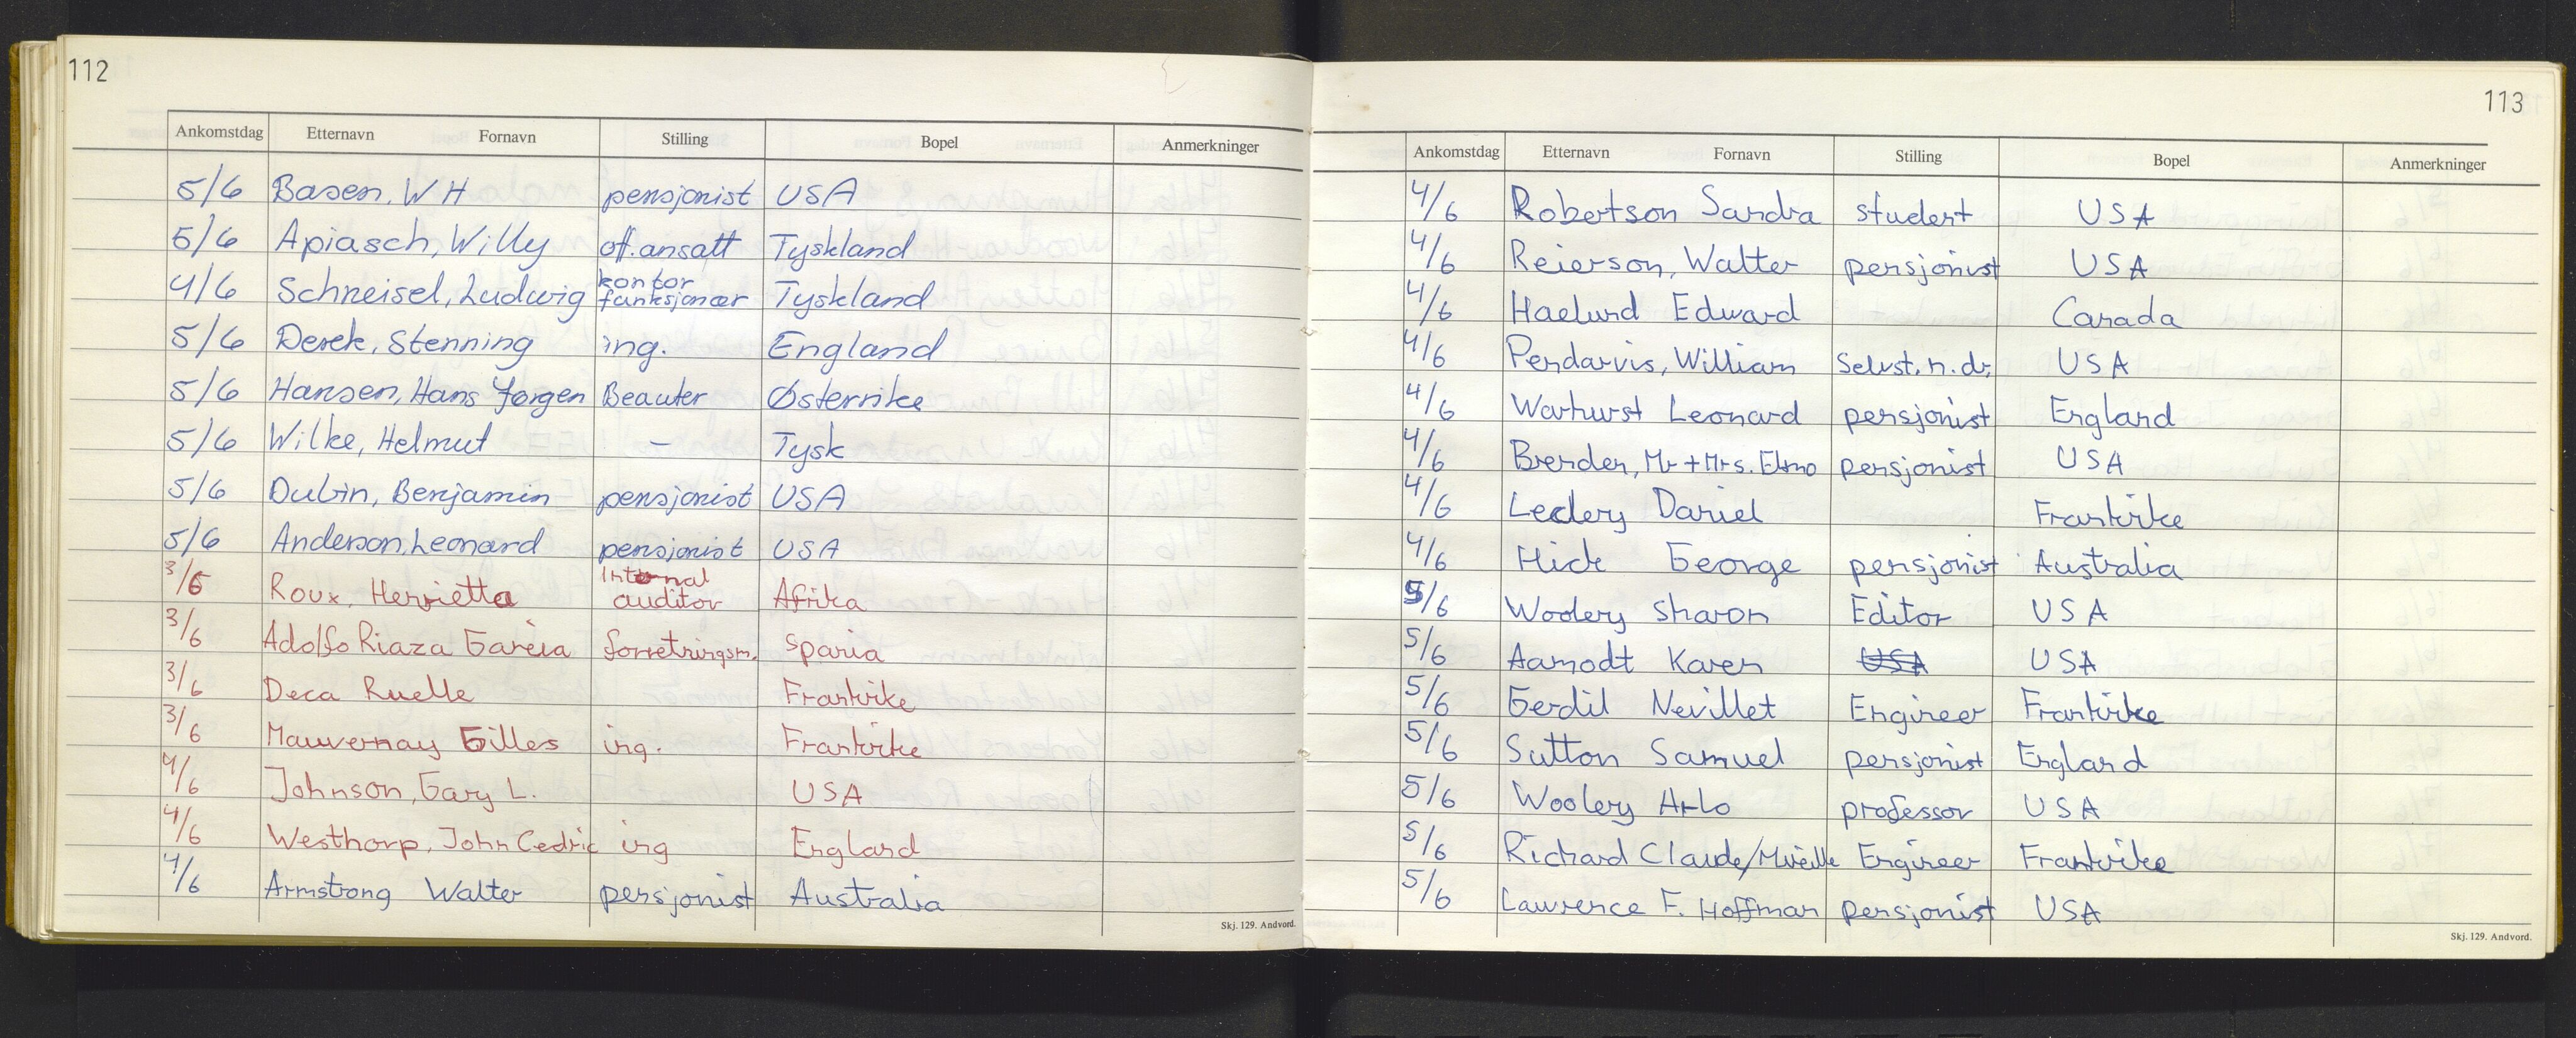 112
Ankomstdag Etternavn Fornavn Stilling Bopel Anmerkninger
5/6 Basen, W H pensjonist USA
5/6 Apiasch, Willy off. ansatt Tyskland
4/6 Schneisel, Ludwig kontor funksjonær Tyskland
5/6 Derek, Stenning ing. England
5/6 Hansen, Hans Jørgen Beamter Østerrike
5/6 Wilke, Helmut — Tysk
5/6 Dubin, Benjamin pensjonist USA
5/6 Anderson, Leonard pensjonist USA
3/6 Roux, Henrietta Internal auditor Afrika
3/6 Adolfo Riaza Garcia forretningsm. Spania
3/6 Deca Ruelle Frankrike
3/6 Mauvernay Gilles ing. Frankrike
4/6 Johnson, Gary L. USA
4/6 Westhorp, John Cedric ing England
4/6 Armstrong Walter pensjonist Australia
Skj. 129. Andvord.
113
Ankomstdag Etternavn Fornavn Stilling Bopel Anmerkninger
4/6 Robertson Sandra student USA
4/6 Reierson, Walter pensjonist USA
4/6 Haelund Edward Canada
4/6 Pendarvis, William Selvst. n. dr. USA
4/6 Warhurst Leonard pensjonist England
4/6 Brenden, Mr + Mrs. Elmo pensjonist USA
4/6 Leclery Daniel Frankrike
4/6 Hick George pensjonist Australia
5/6 Woolery Sharon Editor USA
5/6 Aamodt Karen USA USA
5/6 Gerdil Nevillet Engineer Frankrike
5/6 Sutton Samuel pensjonist England
5/6 Woolery Arlo professor USA
5/6 Richard Claude/Mireille Engineer Frankrike
5/6 Lawrence F. Hoffman pensjonist USA
Skj. 129. Andvord.